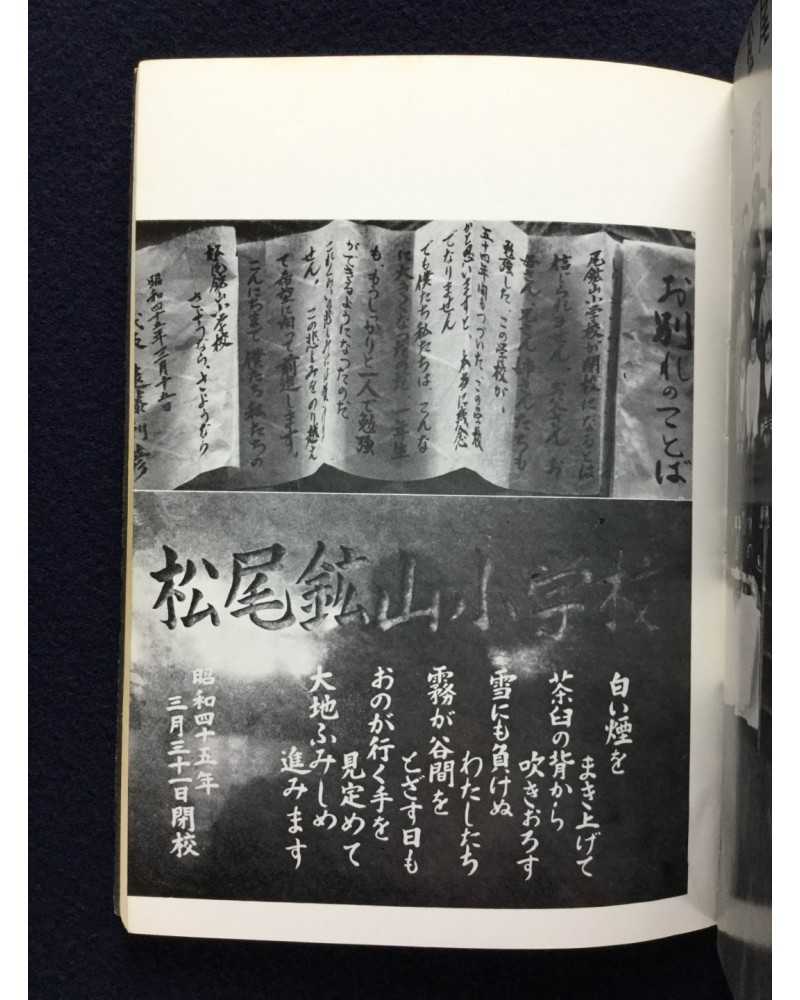 お別れのことば
尾鉱山小学校が閉校になるとは
信じられません。お父さん、お
母さん、兄さん姉さんたちも
勉強した、この学校が
五十四年間もつづいた、この学校
かと思いますと、本当に残念
でなりません
でも僕たち私たちは、こんな
に大きくなったのだ、一年生
も、もうしっかりと一人で勉強
ができるようになったのだ
せん。この悲しみをのり越え
て希望に向って前進します。
こんにちまで僕たち私たちの
松尾鉱山小学校
さようなら、さようなら
昭和四十五年三月十五日
松尾鉱山小学校
白い煙を
まき上げて
茶臼の背から
吹きおろす
雪にも負けぬ
わたしたち
霧が谷間を
とざす日も
おのが行く手を
見定めて
大地ふみしめ
進みます
昭和四十五年
三月三十一日閉校